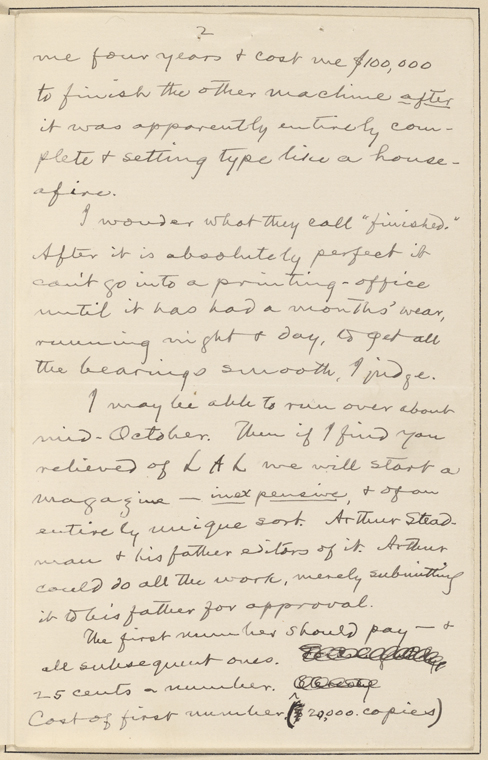 2
me four years & cost me $100,000
to finish the other machine after
it was apparently entirely com-
plete & setting type like a house-
afire.
I wonder what they call "finished."
After it is absolutely perfect it
can't go into a printing-office
until it has had a months' wear,
running night & day, to get all
the bearings smooth, I judge.
I may be able to run over about
mid-October. Then if I find you
relieved of L A L we will start a
magazine — inexpensive, & of an
entirely unique sort. Arthur Stead-
man & his father editors of it. Arthur
could do all the work, merely submitting
it to his father for approval.
The first number should pay — &
all subsequent ones.
25 cents a number.
Cost of first number, (20,000 copies)